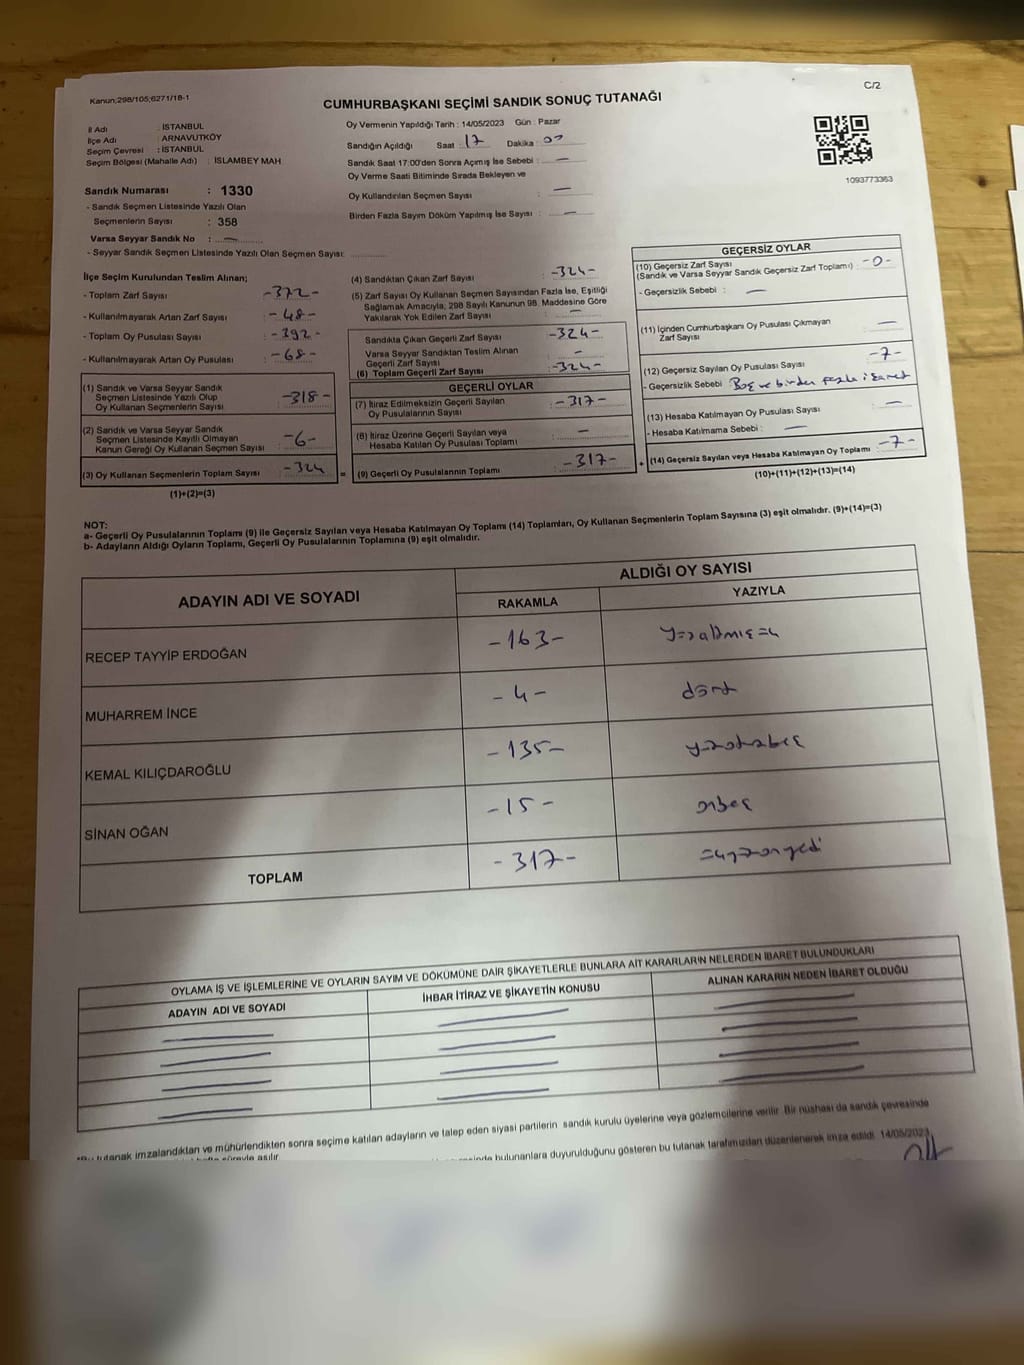 Kanun;298/105;6271/18-1
C/2
CUMHURBAŞKANI SEÇİMİ SANDIK SONUÇ TUTANAĞI
İl Adı : İSTANBUL
İlçe Adı : ARNAVUTKÖY
Seçim Çevresi : İSTANBUL
Seçim Bölgesi (Mahalle Adı) : İSLAMBEY MAH
Sandık Numarası : 1330
- Sandık Seçmen Listesinde Yazılı Olan
Seçmenlerin Sayısı : 358
Varsa Seyyar Sandık No : —
- Seyyar Sandık Seçmen Listesinde Yazılı Olan Seçmen Sayısı:
Oy Vermenin Yapıldığı Tarih : 14/05/2023 Gün : Pazar
Sandığın Açıldığı Saat : 17 Dakika : 00
Sandık Saat 17:00'den Sonra Açımış İse Sebebi : —
Oy Verme Saati Bitiminde Sırada Bekleyen ve
Oy Kullandırılan Seçmen Sayısı : —
Birden Fazla Sayım Döküm Yapılmış İse Sayısı : —
1093773363
İlçe Seçim Kurulundan Teslim Alınan;
- Toplam Zarf Sayısı : -372-
- Kullanılmayarak Artan Zarf Sayısı : -48-
- Toplam Oy Pusulası Sayısı : -392-
- Kullanılmayarak Artan Oy Pusulası : -68-
(1) Sandık ve Varsa Seyyar Sandık
Seçmen Listesinde Yazılı Olup
Oy Kullanan Seçmenlerin Sayısı : -318-
(2) Sandık ve Varsa Seyyar Sandık
Seçmen Listesinde Kayıtlı Olmayan
Kanun Gereği Oy Kullanan Seçmen Sayısı : -6-
(3) Oy Kullanan Seçmenlerin Toplam Sayısı : -324- =
(1)+(2)=(3)
(4) Sandıktan Çıkan Zarf Sayısı : -324-
(5) Zarf Sayısı Oy Kullanan Seçmen Sayısından Fazla İse, Eşitliği
Sağlamak Amacıyla; 298 Sayılı Kanunun 98. Maddesine Göre
Yakılarak Yok Edilen Zarf Sayısı : —
Sandıkta Çıkan Geçerli Zarf Sayısı : -324-
Varsa Seyyar Sandıktan Teslim Alınan
Geçerli Zarf Sayısı : —
(6) Toplam Geçerli Zarf Sayısı : -324-
GEÇERLİ OYLAR
(7) İtiraz Edilmeksizin Geçerli Sayılan
Oy Pusulalarının Sayısı : -317-
(8) İtiraz Üzerine Geçerli Sayılan veya
Hesaba Katılan Oy Pusulası Toplamı : —
(9) Geçerli Oy Pusulalarının Toplamı : -317- +
GEÇERSİZ OYLAR
(10) Geçersiz Zarf Sayısı
(Sandık ve Varsa Seyyar Sandık Geçersiz Zarf Toplamı) : -0-
- Geçersizlik Sebebi : —
(11) İçinden Cumhurbaşkanı Oy Pusulası Çıkmayan
Zarf Sayısı : —
(12) Geçersiz Sayılan Oy Pusulası Sayısı : -7-
- Geçersizlik Sebebi : Boş ve birden fazla işaret
(13) Hesaba Katılmayan Oy Pusulası Sayısı : —
- Hesaba Katılmama Sebebi : —
(14) Geçersiz Sayılan veya Hesaba Katılmayan Oy Toplamı : -7-
(10)+(11)+(12)+(13)=(14)
NOT:
a- Geçerli Oy Pusulalarının Toplamı (9) ile Geçersiz Sayılan veya Hesaba Katılmayan Oy Toplamı (14) Toplamları, Oy Kullanan Seçmenlerin Toplam Sayısına (3) eşit olmalıdır. (9)+(14)=(3)
b- Adayların Aldığı Oyların Toplamı, Geçerli Oy Pusulalarının Toplamına (9) eşit olmalıdır.
ADAYIN ADI VE SOYADI
ALDIĞI OY SAYISI
RAKAMLA YAZIYLA
RECEP TAYYİP ERDOĞAN -163- yüzaltmışüç
MUHARREM İNCE -4- dört
KEMAL KILIÇDAROĞLU -135- yüzotuzbeş
SİNAN OĞAN -15- onbeş
TOPLAM -317- üçyüzonyedi
OYLAMA İŞ VE İŞLEMLERİNE VE OYLARIN SAYIM VE DÖKÜMÜNE DAİR ŞİKAYETLERLE BUNLARA AİT KARARLARIN NELERDEN İBARET BULUNDUKLARI
ADAYIN ADI VE SOYADI İHBAR İTİRAZ VE ŞİKAYETİN KONUSU ALINAN KARARIN NEDEN İBARET OLDUĞU
*Bu tutanak imzalandıktan ve mühürlendikten sonra seçime katılan adayların ve talep eden siyasi partilerin sandık kurulu üyelerine veya gözlemcilerine verilir. Bir nüshası da sandık çevresinde
süreyle asılır. bulunanlara duyurulduğunu gösteren bu tutanak tarafımızdan düzenlenerek imza edildi. 14/05/2023